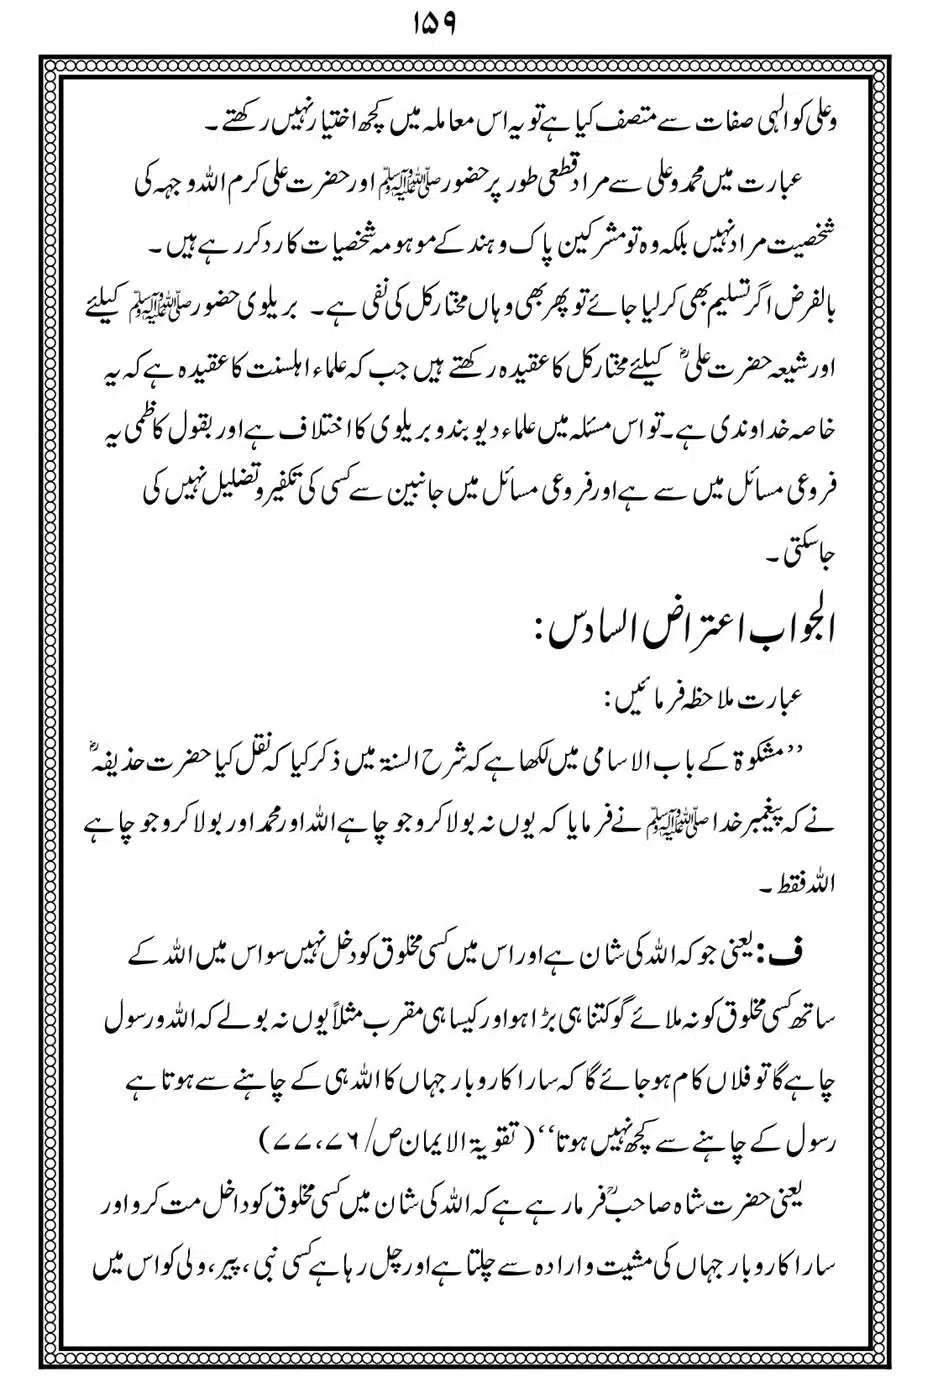 ۱۵۹
وعلی کو الٰہی صفات سے متصف کیا ہے تو یہ اس معاملہ میں کچھ اختیار نہیں رکھتے ۔
عبارت میں محمد و علی سے مراد قطعی طور پر حضور ﷺ اور حضرت علی کرم اللہ وجہہ کی
شخصیت مراد نہیں بلکہ وہ تو مشرکین پاک و ہند کے موہومہ شخصیات کا رد کر رہے ہیں ۔
بالفرض اگر تسلیم بھی کر لیا جائے تو پھر بھی وہاں مختار کل کی نفی ہے ۔ بریلوی حضور ﷺ کیلئے
اور شیعہ حضرت علیؓ کیلئے مختار کل کا عقیدہ رکھتے ہیں جب کہ علماء اہلسنت کا عقیدہ ہے کہ یہ
خاصہ خداوندی ہے۔ تو اس مسئلہ میں علماء دیوبند و بریلوی کا اختلاف ہے اور بقول کاظمی یہ
فروعی مسائل میں سے ہے اور فروعی مسائل میں جانبین سے کسی کی تکفیر و تضلیل نہیں کی
جاسکتی ۔
الجواب اعتراض السادس :
عبارت ملاحظہ فرمائیں :
’’مشکوۃ کے باب الاسامی میں لکھا ہے کہ شرح السنۃ میں ذکر کیا کہ نقل کیا حضرت حذیفہؓ
نے کہ پیغمبر خدا ﷺ نے فرمایا کہ یوں نہ بولا کرو جو چاہے اللہ اور محمد اور بولا کرو جو چاہے
اللہ فقط ۔
ف : یعنی جو کہ اللہ کی شان ہے اور اس میں کسی مخلوق کو دخل نہیں سو اس میں اللہ کے
ساتھ کسی مخلوق کو نہ ملائے گو کتنا ہی بڑا ہو اور کیسا ہی مقرب مثلاً یوں نہ بولے کہ اللہ و رسول
چاہے گا تو فلاں کام ہو جائے گا کہ سارا کاروبار جہاں کا اللہ ہی کے چاہنے سے ہوتا ہے
رسول کے چاہنے سے کچھ نہیں ہوتا‘‘ (تقویۃ الایمان ص/۷۷،۷۶)
یعنی حضرت شاہ صاحبؒ فرما رہے ہے کہ اللہ کی شان میں کسی مخلوق کو داخل مت کرو اور
سارا کاروبار جہاں کی مشیت و ارادہ سے چلتا ہے اور چل رہا ہے کسی نبی ، پیر، ولی کو اس میں